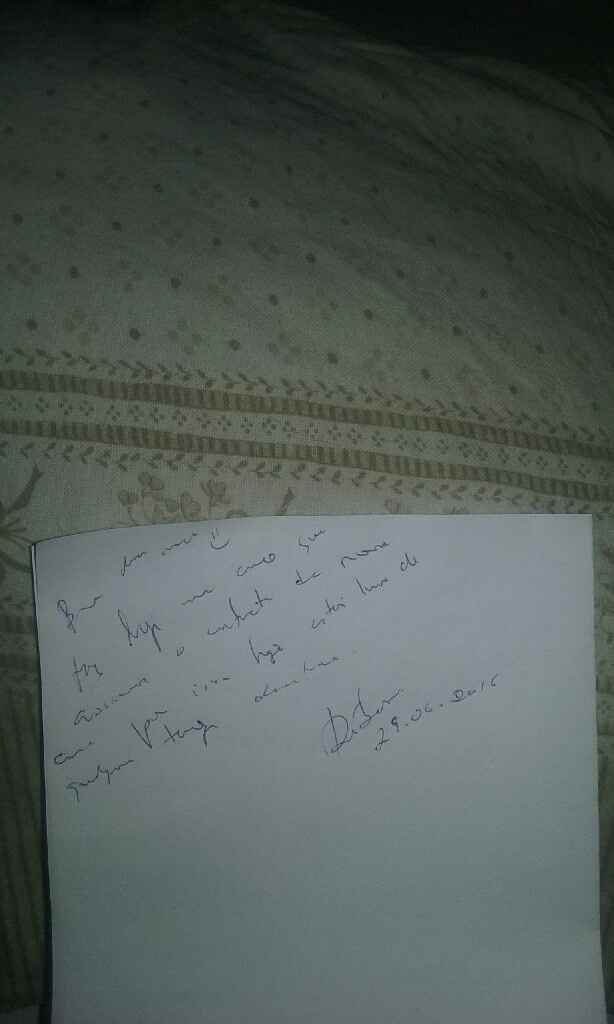 Bom dia amor
faz hoje um ano que
assinamos o contrato da nossa
casa por isso hoje estás livre de
qualquer tarefa doméstica.
29.06.2016